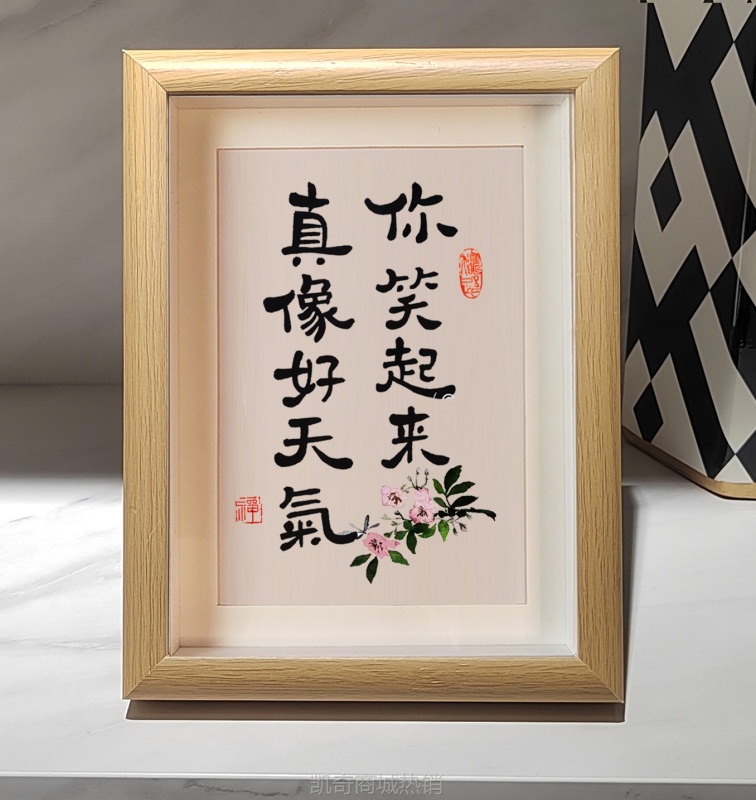 你笑起来
真像好天氣
禪
凯奇商城热销